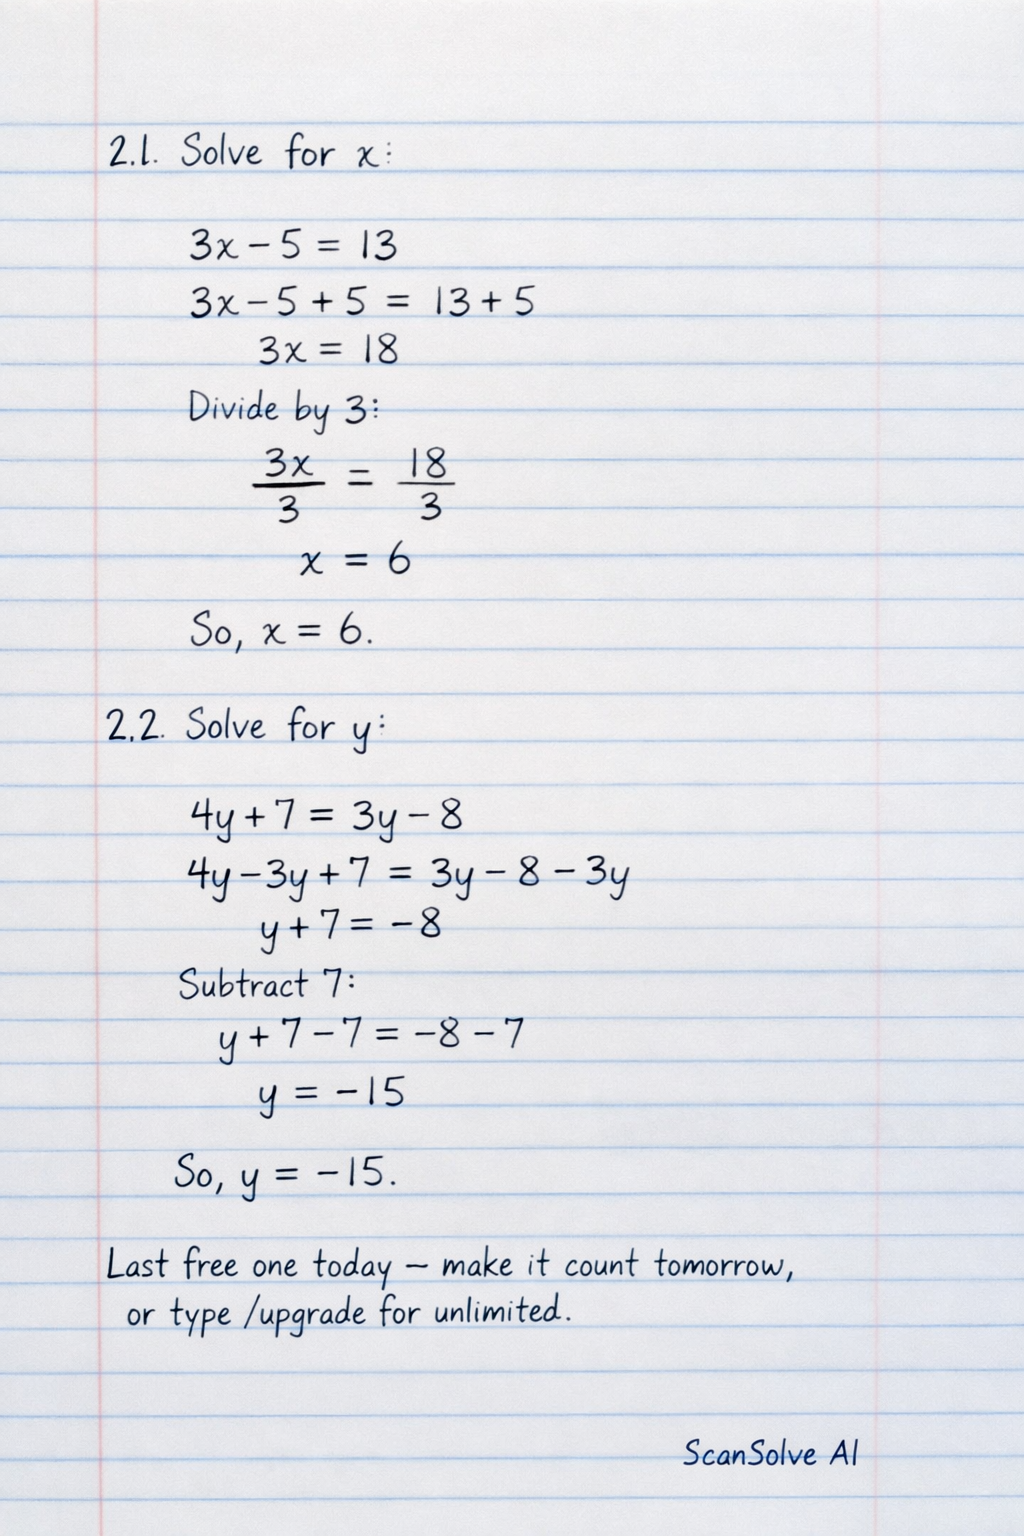 2.1. Solve for x:
3x - 5 = 13
3x - 5 + 5 = 13 + 5
3x = 18
Divide by 3:
3x/3 = 18/3
x = 6
So, x = 6.
2.2. Solve for y:
4y + 7 = 3y - 8
4y - 3y + 7 = 3y - 8 - 3y
y + 7 = -8
Subtract 7:
y + 7 - 7 = -8 - 7
y = -15
So, y = -15.
Last free one today — make it count tomorrow,
or type /upgrade for unlimited.
ScanSolve AI